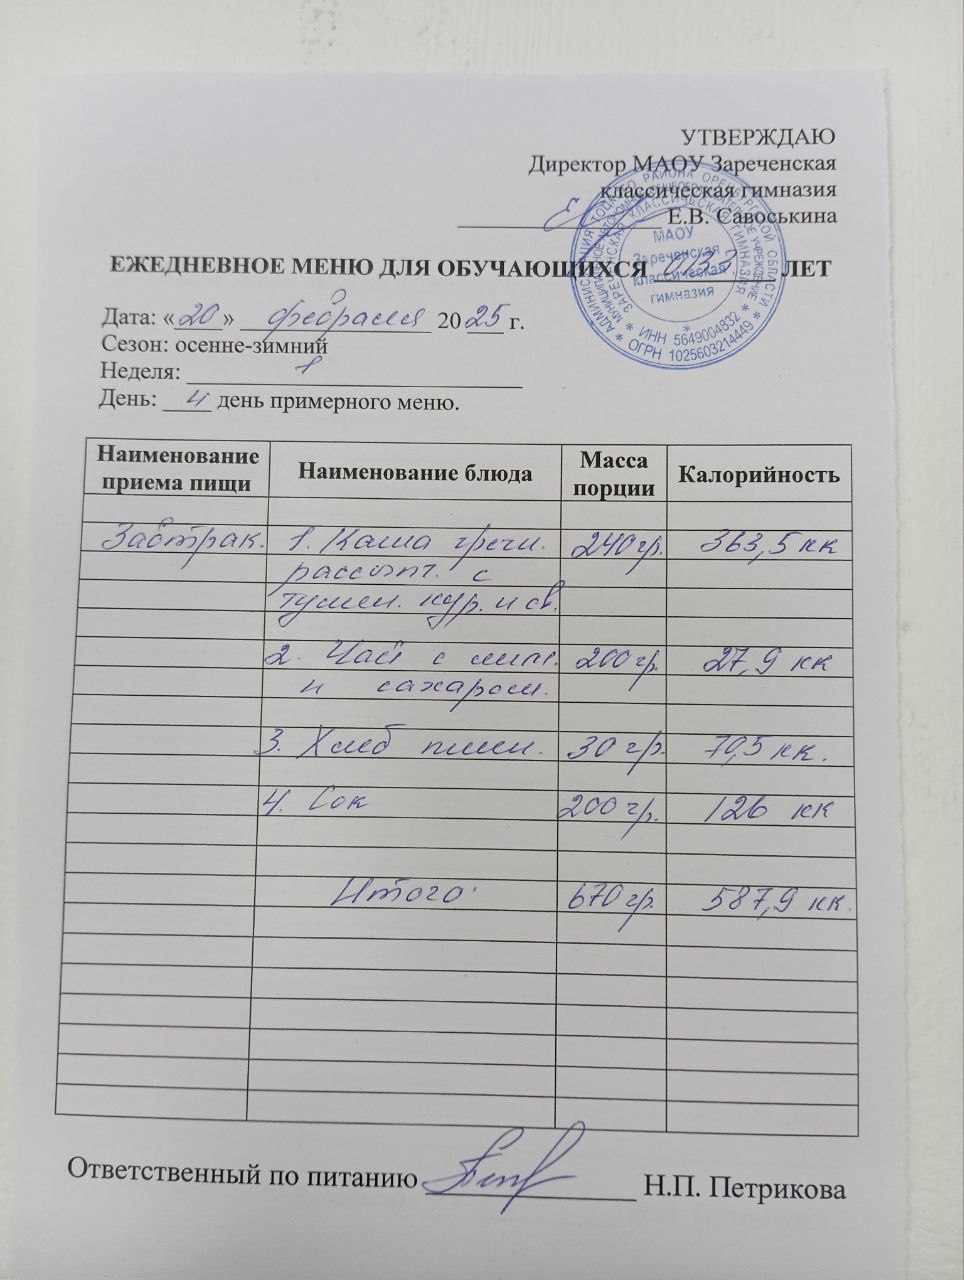 УТВЕРЖДАЮ
Директор МАОУ Зареченская
классическая гимназия
Е.В. Савоськина
АДМИНИСТРАЦИЯ ТОЦКОГО РАЙОНА ОРЕНБУРГСКОЙ ОБЛАСТИ
МУНИЦИПАЛЬНОЕ АВТОНОМНОЕ ОБЩЕОБРАЗОВАТЕЛЬНОЕ УЧРЕЖДЕНИЕ
ЗАРЕЧЕНСКАЯ КЛАССИЧЕСКАЯ ГИМНАЗИЯ
* ИНН 5649004832 *
* ОГРН 1025603214449 *
МАОУ
Зареченская
классическая
гимназия
ЕЖЕДНЕВНОЕ МЕНЮ ДЛЯ ОБУЧАЮЩИХСЯ ОВЗ ЛЕТ
Дата: «20» февраля 2025 г.
Сезон: осенне-зимний
Неделя: 1
День: 4 день примерного меню.
Наименование приема пищи Наименование блюда Масса порции Калорийность
Завтрак. 1. Каша гречн. 240 гр. 363,5 кк
рассыпч. с
тушен. кур. и св.
2. Чай с лим. 200 гр. 27,9 кк
и сахаром.
3. Хлеб пшен. 30 гр. 70,5 кк.
4. Сок 200 гр. 126 кк
Итого 670 гр. 587,9 кк.
Ответственный по питанию Н.П. Петрикова